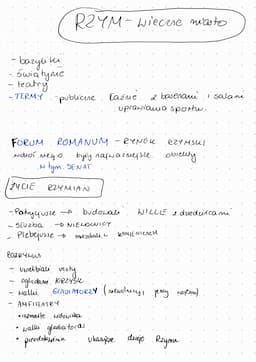 RZYM - wieczne miasto
- bazyliki
- świątynie
- teatry
- TERMY - publiczne łaźnie z basenami i salami
uprawiania sportu.
FORUM ROMANUM - RYNEK RZYMSKI
wokół niego były najważniejsze obiekty
w tym. SENAT
ŻYCIE RZYMIAN
- Patrycjusze → budowali WILLE z dziedzińcami
- służba → NIEWOLNICY
- Plebejusze → mieszkali w kamienicach
ROZRYWKI
- uwielbiali uczty
- oglądanie IGRZYSK
- walki GLADIATORZY (niewolnicy, jeńcy wojenni)
- AMFITEATRY
• walki gladiatorów
• przedstawienia ukazujące dzieje Rzymu